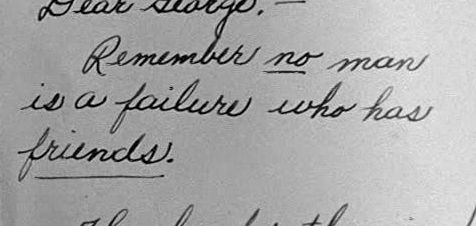 Dear George,—
Remember no man
is a failure who has
friends.